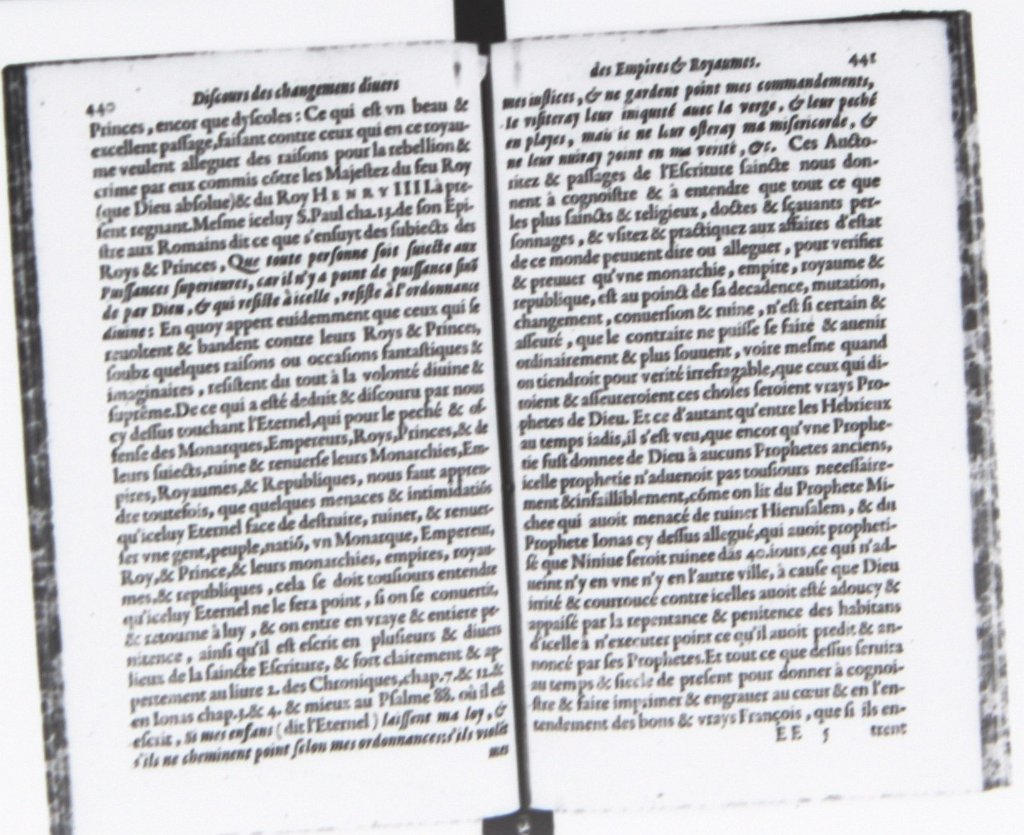 440
Discours des changemens diuers
Princes, encor que dyscoles: Ce qui est vn beau &
excellent passage, faisant contre ceux qui en ce royau-
me veulent alleguer des raisons pour la rebellion &
crime par eux commis cõtre les Majestez du feu Roy
(que Dieu absolue) & du Roy HENRY IIII. à pre-
sent regnant. Mesme iceluy S. Paul cha.13. de son Epi-
stre aux Romains dit ce que s'ensuyt des subiects des
Roys & Princes, Que toute personne soit suiecte aux
Puissances superieures, car il n'y a point de puissance sinõ
de par Dieu, & qui resiste à icelle, resiste à l'ordonnance
diuine: En quoy appert euidemment que ceux qui se
reuoltent & bandent contre leurs Roys & Princes,
soubz quelques raisons ou occasions fantastiques &
imaginaires, resistent du tout à la volonté diuine &
suprême. De ce qui a esté deduit & discouru par nous
cy dessus touchant l'Eternel, qui pour le peché & of-
fense des Monarques, Empereurs, Roys, Princes, & de
leurs suiects, ruine & renuerse leurs Monarchies, Em-
pires, Royaumes, & Republiques, nous faut appren-
dre toutefois, que quelques menaces & intimidatiõs
qu'iceluy Eternel face de destruire, ruiner, & renuer-
ser vne gent, peuple, natiõ, vn Monarque, Empereur,
Roy, & Prince, & leurs monarchies, empires, royau-
mes, & republiques, cela se doit tousiours entendre
qu'iceluy Eternel ne le fera point, si on se conuertit,
& retourne à luy, & on entre en vraye & entiere pe-
nitence, ainsi qu'il est escrit en plusieurs & diuers
lieux de la saincte Escriture, & fort clairement & ap-
pertement au liure 2. des Chroniques, chap.7. & 12. &
en Ionas chap.3. & 4. & mieux au Psalme 88. où il est
escrit, Si mes enfans (dit l'Eternel) laissent ma loy, &
s'ils ne cheminent point selon mes ordonnances: s'ils violẽt
mes
des Empires & Royaumes.
441
mes iustices, & ne gardent point mes commandements,
Ie visiteray leur iniquité auec la verge, & leur peché
en playes, mais ie ne leur osteray ma misericorde, &
ne leur nuiray point en ma verité, &c. Ces Aucto-
ritez & passages de l'Escriture saincte nous don-
nent à cognoistre & à entendre que tout ce que
les plus saincts & religieux, doctes & sçauants per-
sonnages, & vsitez & practiquez aux affaires d'estat
de ce monde peuuent dire ou alleguer, pour verifier
& preuuer qu'vne monarchie, empire, royaume &
republique, est au poinct de sa decadence, mutation,
changement, conuersion & ruine, n'est si certain &
asseuré, que le contraire ne puisse se faire & auenir
ordinairement & plus souuent, voire mesme quand
on tiendroit pour verité irrefragable, que ceux qui di-
roient & asseureroient ces choses seroient vrays Pro-
phetes de Dieu. Et ce d'autant qu'entre les Hebrieux
au temps iadis, il s'est veu, que encor qu'vne Prophe-
tie fust donnee de Dieu à aucuns Prophetes anciens,
icelle prophetie n'aduenoit pas tousiours necessaire-
ment & infailliblement, cõme on lit du Prophete Mi-
chee qui auoit menacé de ruiner Hierusalem, & du
Prophete Ionas cy dessus allegué, qui auoit propheti-
sé que Niniue seroit ruinee dãs 40. iours, ce qui n'ad-
ueint n'y en vne n'y en l'autre ville, à cause que Dieu
irrité & courroucé contre icelles auoit esté adoucy &
appaisé par la repentance & penitence des habitans
d'icelle à n'executer point ce qu'il auoit predit & an-
noncé par ses Prophetes. Et tout ce que dessus seruira
au temps & siecle de present pour donner à cognoi-
stre & faire imprimer & engrauer au cœur & en l'en-
tendement des bons & vrays François, que si ils en-
EE 5
trent